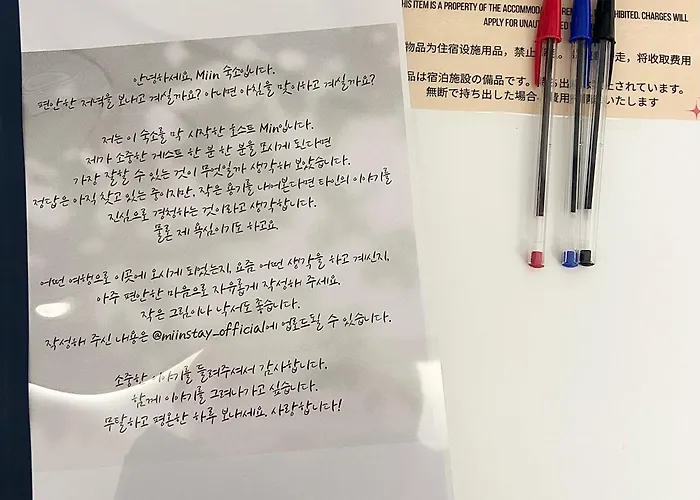 안녕하세요, Miin 숙소입니다.
편안한 저녁을 보내고 계실까요? 아니면 아침을 맞이하고 계실까요?
저는 이 숙소를 막 시작한 호스트 Min입니다.
제가 소중한 게스트 한 분 한 분을 모시게 된다면
가장 잘할 수 있는 것이 무엇일까 생각해 보았습니다.
정답은 아직 찾고 있는 중이지만, 작은 용기를 내어본다면 타인의 이야기를
진심으로 경청하는 것이라고 생각합니다.
물론 제 욕심이기도 하고요.
어떤 여행으로 이곳에 오시게 되었는지, 요즘 어떤 생각을 하고 계신지,
아주 편안한 마음으로 자유롭게 작성해 주세요.
작은 그림이나 낙서도 좋습니다.
작성해 주신 내용은 @miinstay_official에 업로드될 수 있습니다.
소중한 이야기를 들려주셔서 감사합니다.
함께 이야기를 그려나가고 싶습니다.
무탈하고 평온한 하루 보내세요. 사랑합니다!
THIS ITEM IS A PROPERTY OF THE CHARGES WILL
APPLY FOR
物品为住宿设施用品，禁止 走，将收取费用
品は宿泊施設の備品です。 されています。
無断で持ち出した場合 いたします